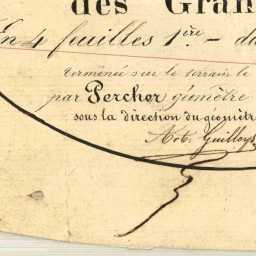 des Gran
En 4 feuilles 1ère - du
terminée sur le terrain le
par Percher géomètre
sous la direction du géomètr
Not. Guilloy